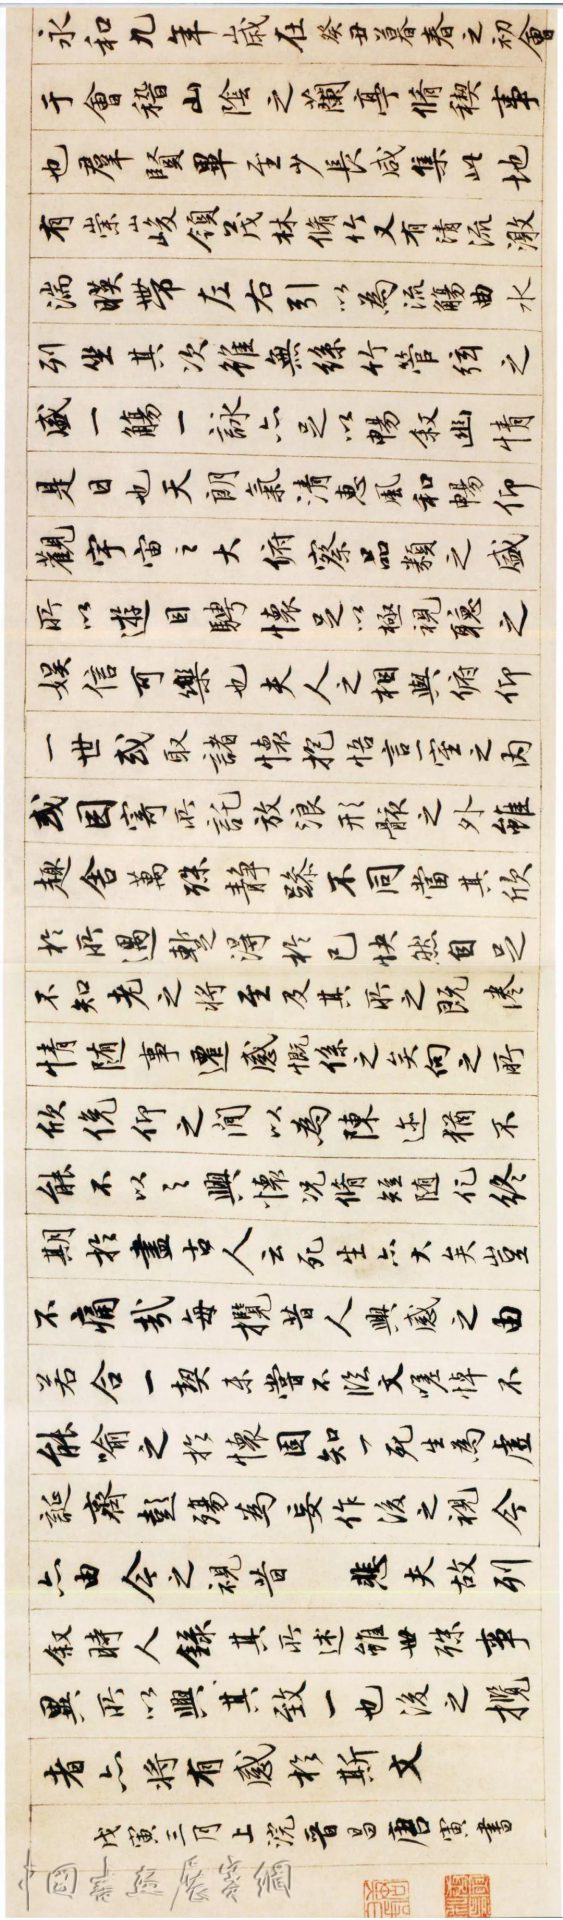 永和九年歲在癸丑暮春之初會
于會稽山陰之蘭亭脩稧事
也羣賢畢至少長咸集此地
有崇山峻領茂林脩竹又有清流激
湍暎帶左右引以為流觴曲水
列坐其次雖無絲竹管弦之
盛一觴一詠亦足以暢敘幽情
是日也天朗氣清惠風和暢仰
觀宇宙之大俯察品類之盛
所以遊目騁懷足以極視聽之
娛信可樂也夫人之相與俯仰
一世或取諸懷抱悟言一室之內
或因寄所託放浪形骸之外雖
趣舍萬殊靜躁不同當其欣
於所遇蹔得於己快然自足
不知老之將至及其所之既惓
情隨事遷感慨係之矣向之所
欣俛仰之間以為陳迹猶不
能不以之興懷況脩短隨化終
期於盡古人云死生亦大矣豈
不痛哉每攬昔人興感之由
若合一契未嘗不臨文嗟悼不
能喻之於懷固知一死生為虛
誕齊彭殤為妄作後之視今
亦由今之視昔 悲夫故列
敘時人錄其所述雖世殊事
異所以興其致一也後之攬
者亦將有感於斯文
戊寅三月上浣晉昌唐寅書
中國書法展賽網